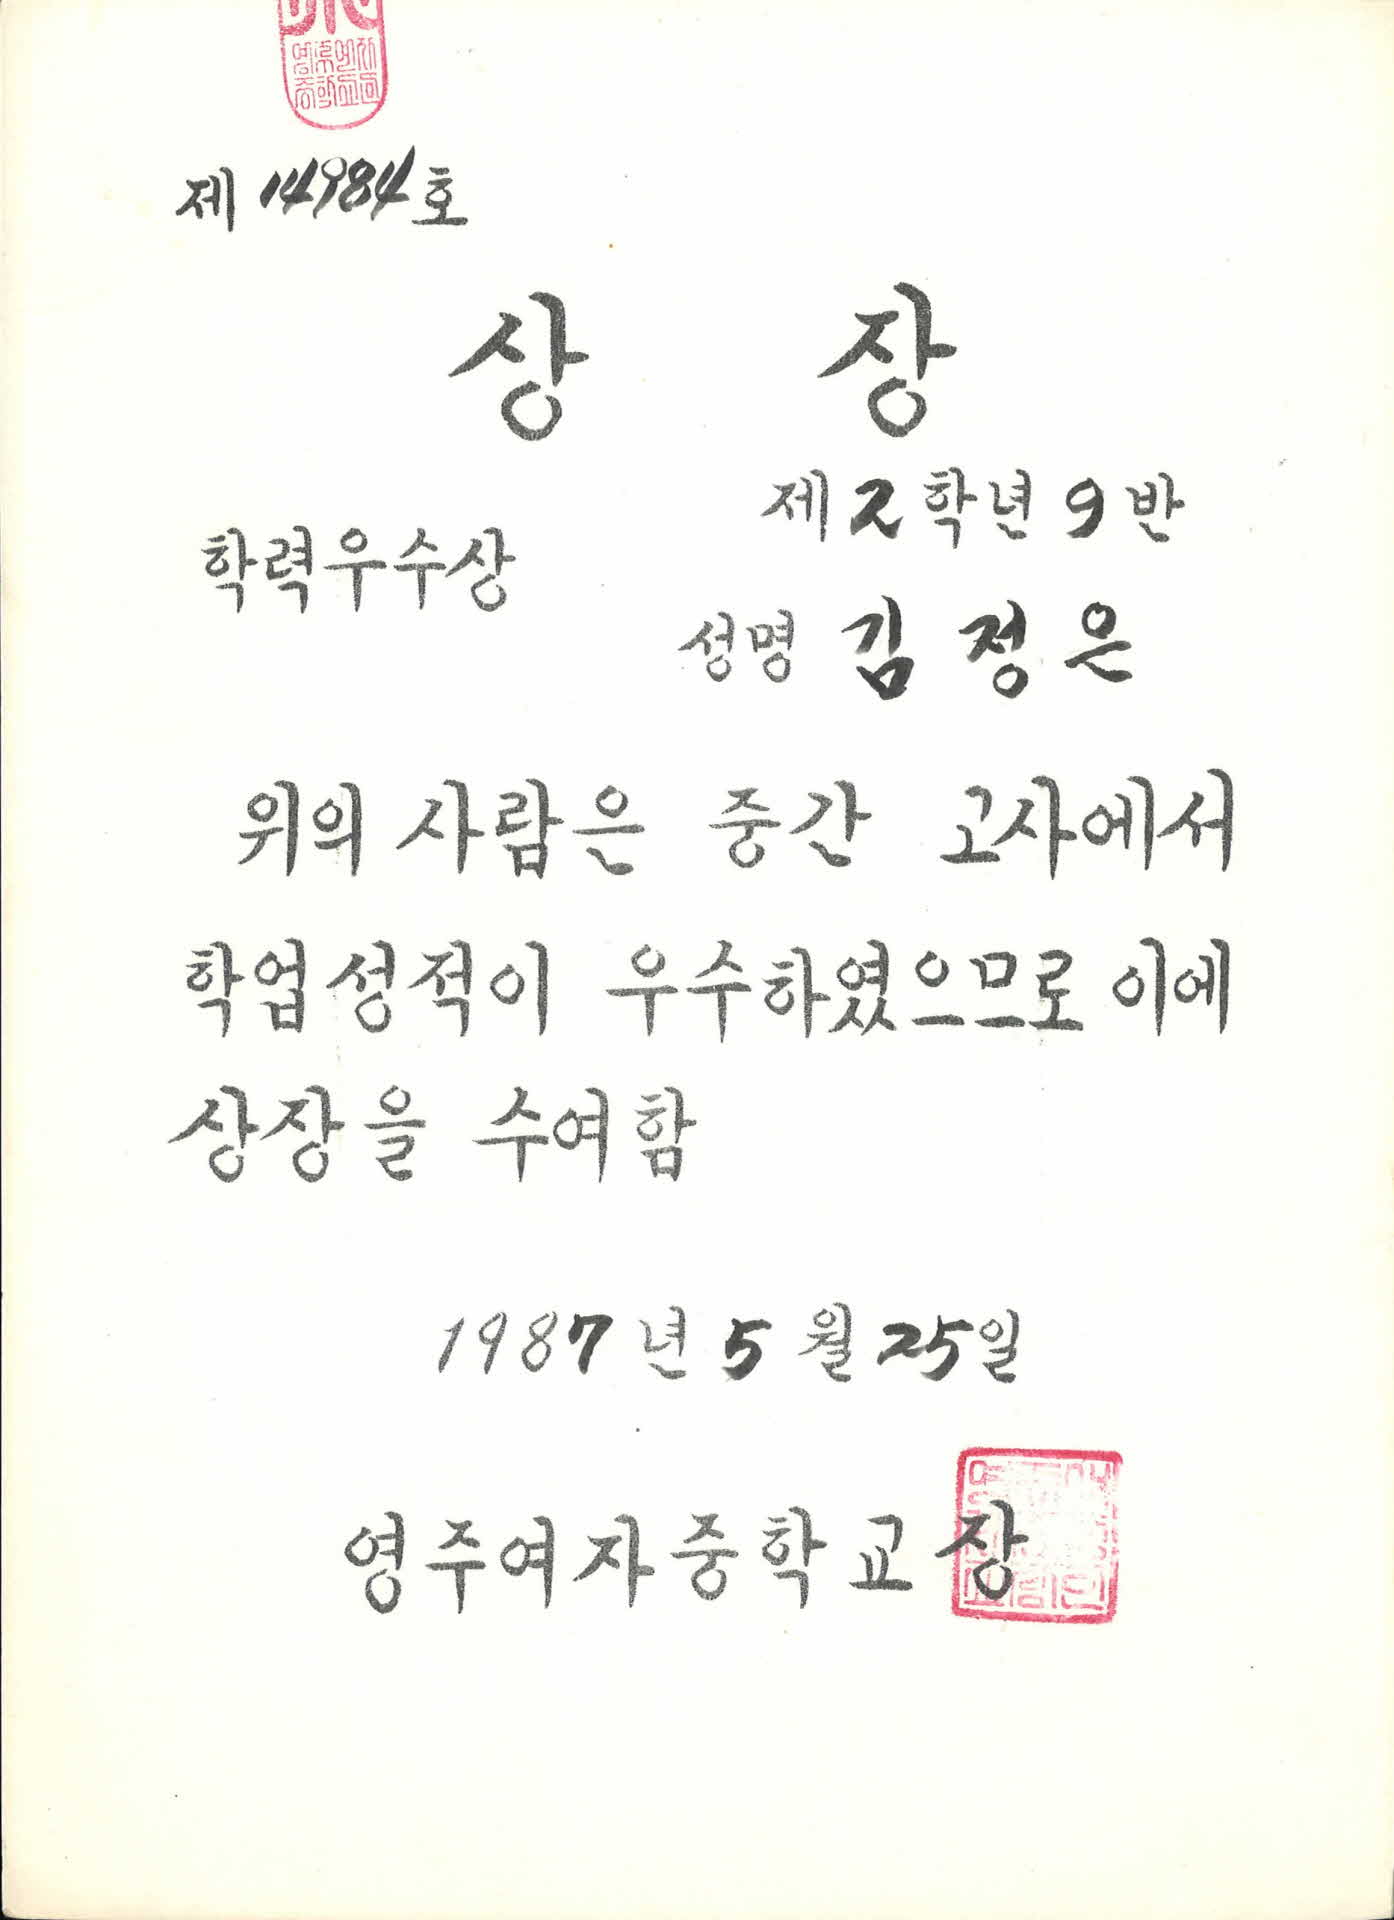 제 14984 호
상 장
제 2 학년 9 반
학력우수상
성명 김 정 은
위의 사람은 중간 고사에서
학업성적이 우수하였으므로 이에
상장을 수여함
1987 년 5 월 25 일
영주여자중학교장